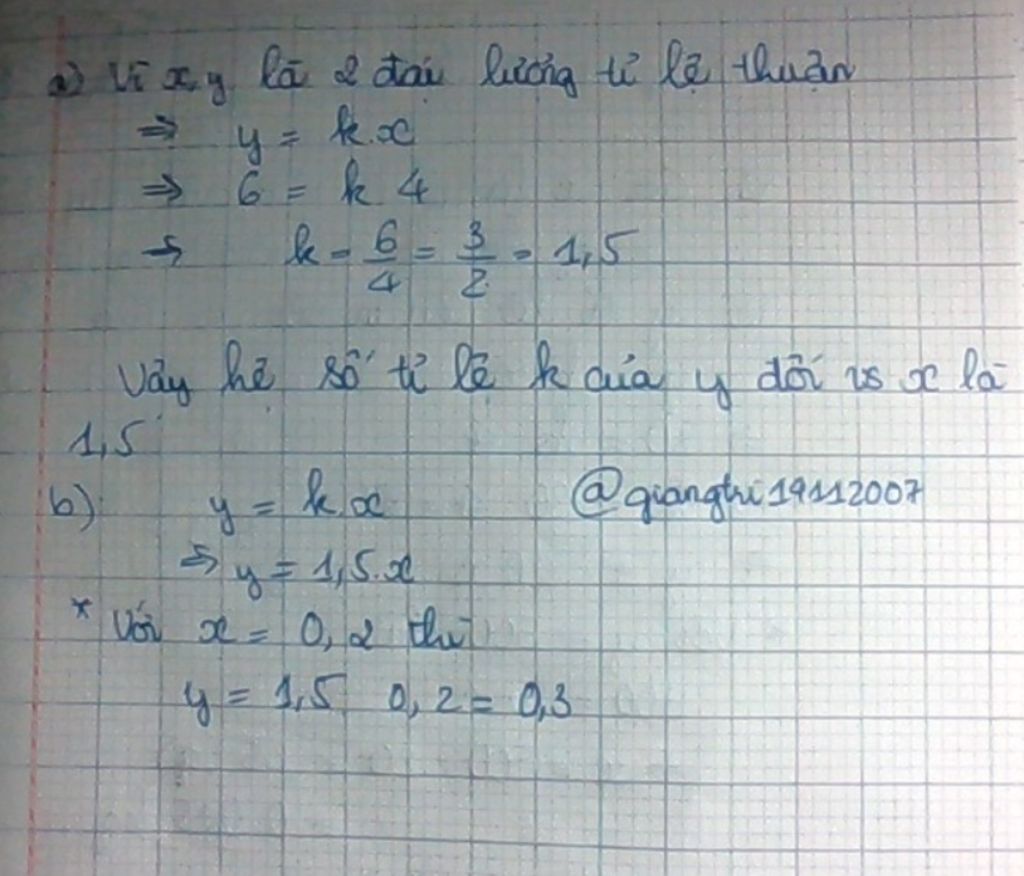 a) Vì x, y là 2 đại lượng tỉ lệ thuận
⇒ y = k.x
⇒ 6 = k 4
⇒ k = 6/4 = 3/2 = 1,5
Vậy hệ số tỉ lệ k của y đối vs x là
1,5
b) y = k.x @giangtri19112007
⇒ y = 1,5.x
* Với x = 0,2 thì
y = 1,5 0,2 = 0,3